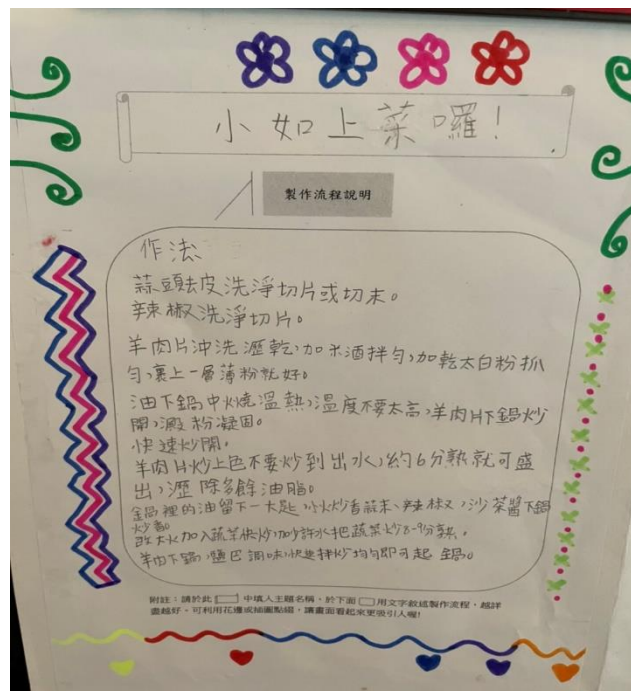 小如上菜囉！
製作流程說明
作法
蒜頭去皮洗淨切片或切末。
辣椒洗淨切片。
羊肉片沖洗瀝乾，加米酒拌勻，加乾太白粉抓
勻，裹上一層薄粉就好。
油下鍋中火燒溫熱，溫度不要太高，羊肉片下鍋炒
開，澱粉凝固。
快速炒開。
羊肉片炒上色不要炒到出水，約6分熟就可盛
出，瀝除多餘油脂。
鍋裡的油留下一大匙，小火炒香蒜末、辣椒，沙茶醬下鍋
炒香。
改大火加入蔬菜快炒，加少許水把蔬菜炒8-9分熟。
羊肉下鍋，鹽巴調味，快速拌炒均勻即可起鍋。
附註：請於此 中填入主題名稱，於下面 用文字敘述製作流程，越詳
盡越好。可利用花邊或插圖點綴，讓畫面看起來更吸引人喔!